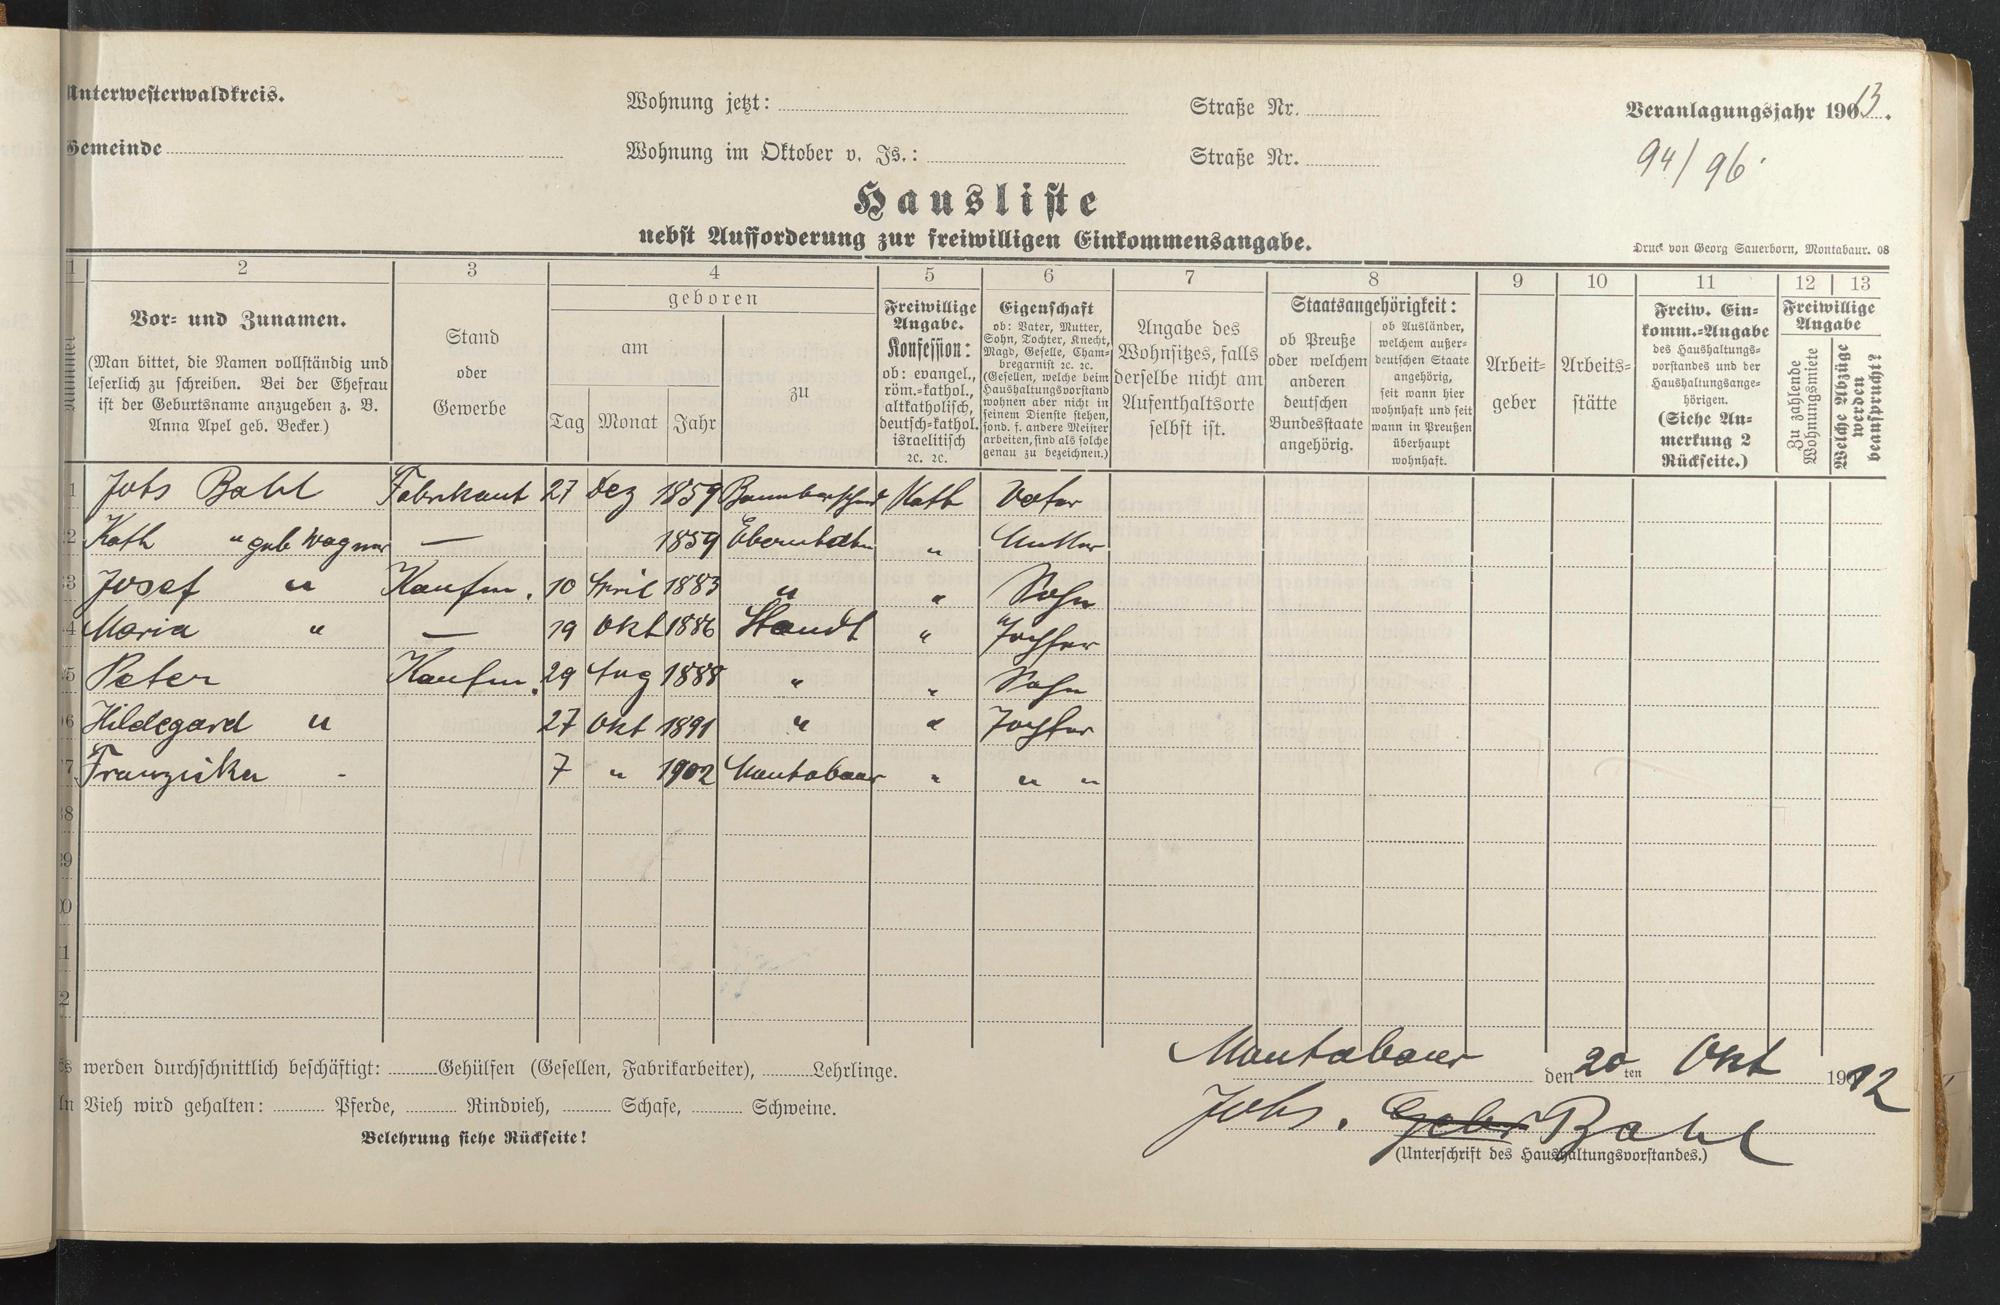 Unterwesterwaldkreis.
Wohnung jetzt:
Straße Nr.
Veranlagungsjahr 1913.
Gemeinde
Wohnung im Oktober v. Js.:
Straße Nr.
94/96
Hausliste
nebst Aufforderung zur freiwilligen Einkommensangabe.
Druck von Georg Sauerborn, Montabaur. 08
1 2 3 4 5 6 7 8 9 10 11 12 13
Nummer
Vor- und Zunamen.
(Man bittet, die Namen vollständig und
leserlich zu schreiben. Bei der Ehefrau
ist der Geburtsname anzugeben z. B.
Anna Apel geb. Becker.)
Stand
oder
Gewerbe
geboren
am
Tag Monat Jahr
zu
Freiwillige
Angabe.
Konfession:
ob: evangel.,
röm.-kathol.,
altkatholisch,
deutsch-kathol.
israelitisch
ꝛc. ꝛc.
Eigenschaft
ob: Vater, Mutter,
Sohn, Tochter, Knecht,
Magd, Geselle, Cham-
bregarnist ꝛc. ꝛc.
(Gesellen, welche beim
Haushaltungsvorstand
wohnen aber nicht in
seinem Dienste stehen,
sond. f. andere Meister
arbeiten, sind als solche
genau zu bezeichnen.)
Angabe des
Wohnsitzes, falls
derselbe nicht am
Aufenthaltsorte
selbst ist.
Staatsangehörigkeit:
ob Preuße
oder welchem
anderen
deutschen
Bundesstaate
angehörig.
ob Ausländer,
welchem außer-
deutschen Staate
angehörig,
seit wann hier
wohnhaft und seit
wann in Preußen
überhaupt
wohnhaft.
Arbeit-
geber
Arbeits-
stätte
Freiw. Ein-
komm.-Angabe
des Haushaltungs-
vorstandes und der
Haushaltungsange-
hörigen.
(Siehe An-
merkung 2
Rückseite.)
Freiwillige
Angabe
Zu zahlende
Wohnungsmiete
Welche Abzüge
werden
beansprucht?
1 Johs Bahl Fabrikant 27 Dez 1859 Kath Vater
2 Kath " geb Wagner — 1859 " Mutter
3 Josef " Kaufm. 10 April 1883 " " Sohn
4 Maria " — 19 Okt 1886 Staudt " Tochter
5 Peter Kaufm. 29 Aug 1888 " " Sohn
6 Hildegard " 27 Okt 1891 " " Tochter
7 Franziska - 7 " 1902 Montabaur " " "
8
9
10
11
12
Es werden durchschnittlich beschäftigt: Gehülfen (Gesellen, Fabrikarbeiter), Lehrlinge.
An Vieh wird gehalten: Pferde, Rindvieh, Schafe, Schweine.
Belehrung siehe Rückseite!
Montabaur den 20ten Okt 1912
Johs. Gebr Bahl
(Unterschrift des Haushaltungsvorstandes.)